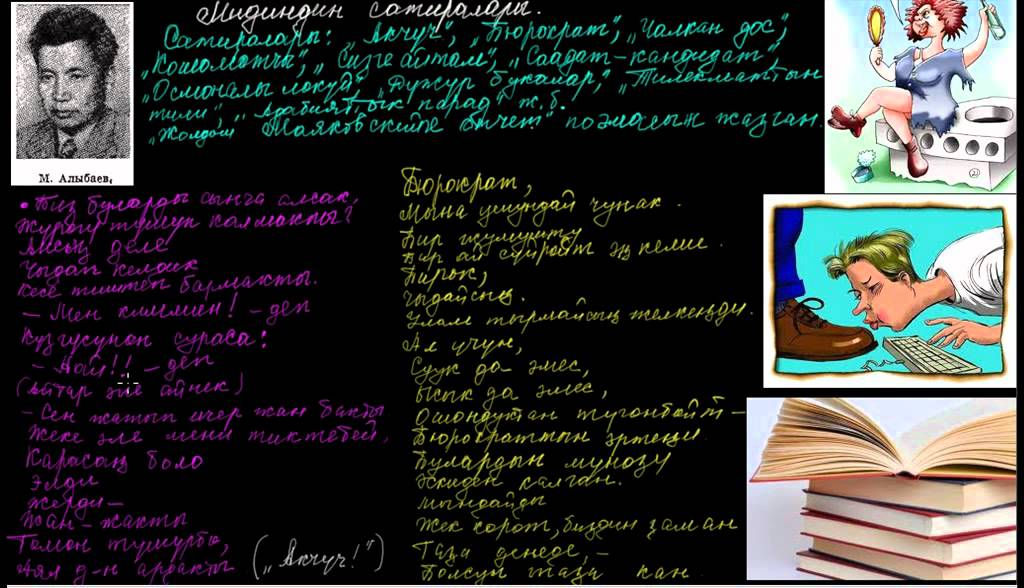 Мидиндин сатиралары.
Сатиралары: „Акчуч", „Бюрократ", „Чалкан дос",
„Кошоматчы", „Сизге айтам", „Саадат-кандидат",
„Осмоналы локуй", „Дүжүр букалар", „Тилекматтын
тили", „Адабияттык парад" ж.б.
„Жолдош Маяковскийге отчет" поэмасын жазган.
М. Алыбаев,
• Биз буларды сынча алсак,
Жүрөгү түшүп калмакпы?
деле
Чыдап келсек
Кесе тиштеп бармакты.
– Мен киммин! – деп
Күзгүсүнөн сураса:
– Аял!! – деп
(Айтар эле айнек)
– Сен жатып ичер жан бакты
Жеке эле мени тиктебей,
Карасаң боло
Элди
Жерди –
Жан-жакты
Төмөн түшүрбө,
Аял д-н ардакты („Акчуч!")
Бюрократ,
Мына ушундай чунак.
Бир жумушту
Бир ай сүйрөйт эң кеминде.
Бирок,
Чыдайсың.
Улам тырмайсың желкеңди.
Ал үчүн,
Суук да эмес,
Ысык да эмес,
Ошондуктан түгөнбөйт –
Бюрократтын эртеңи.
Булардын мүнөзү
Эскиден калган.
Мындайды
Жек көрөт, биздин заман
Таза денеде, –
Болсун таза кан